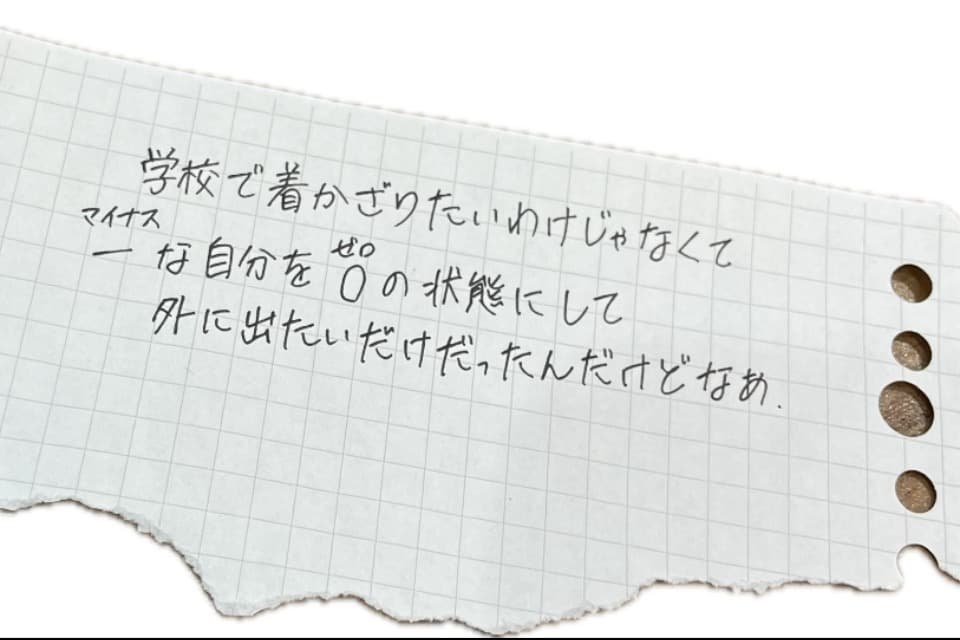 学校で着かざりたいわけじゃなくて
マイナス ゼロ
ーな自分を0の状態にして
外に出たいだけだったんだけどなぁ.